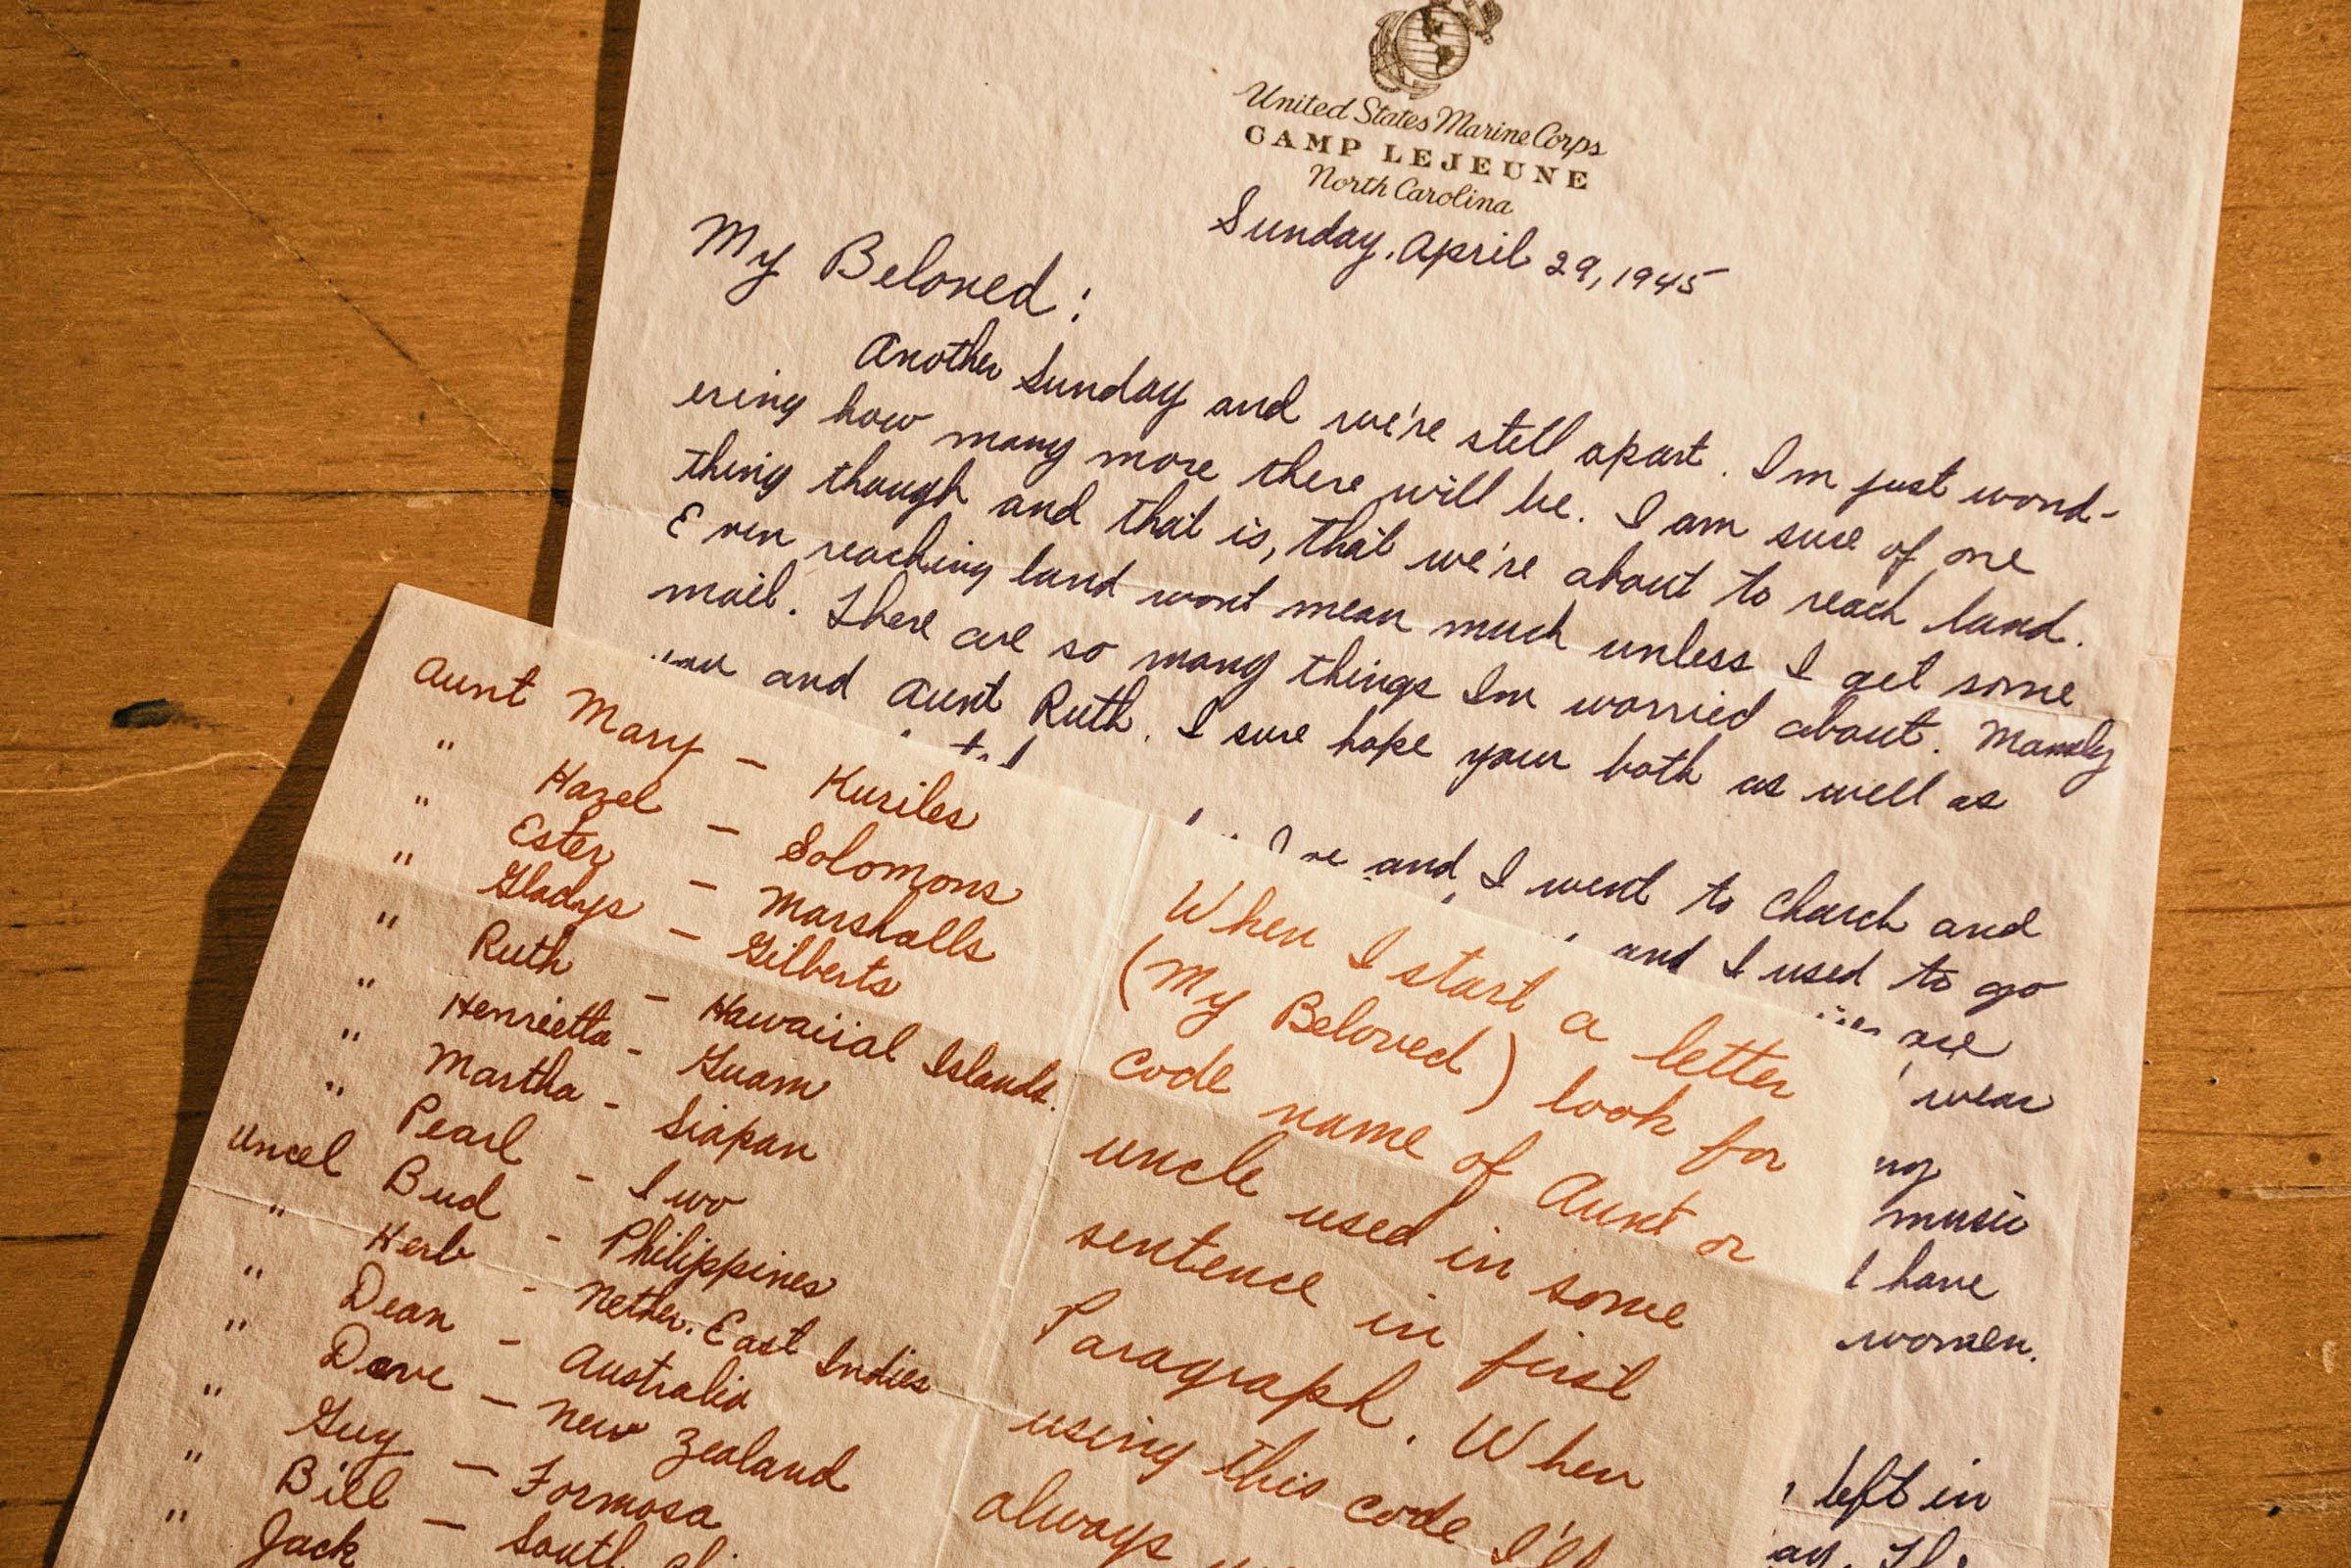 United States Marine Corps
CAMP LEJEUNE
North Carolina
Sunday, April 29, 1945
My Beloved:
Another Sunday and we're still apart. I'm just wond-
ering how many more there will be. I am sure of one
thing though and that is, that we're about to reach land.
Even reaching land wont mean much unless I get some
mail. There are so many things Im worried about. Mainly
you and Aunt Ruth. I sure hope your both as well as
and I went to Church and
and I used to go
are
wear
music
I have
women.
left in
Aunt Mary — Kuriles
" Hazel — Solomons
" Ester — Marshalls
" Gladys — Gilberts
" Ruth — Hawaiial Islands.
" Henrietta - Guam
" Martha - Siapan
" Pearl - Iwo
Uncel Bud - Philippines
" Herb - Nether. East Indies
" Dean - Australia
" Dave — New Zealand
" Guy — Formosa
" Bill — South
" Jack
When I start a letter
(My Beloved) look for
code name of Aunt or
uncle used in some
sentence in first
Paragraph. When
using this code I'll
always